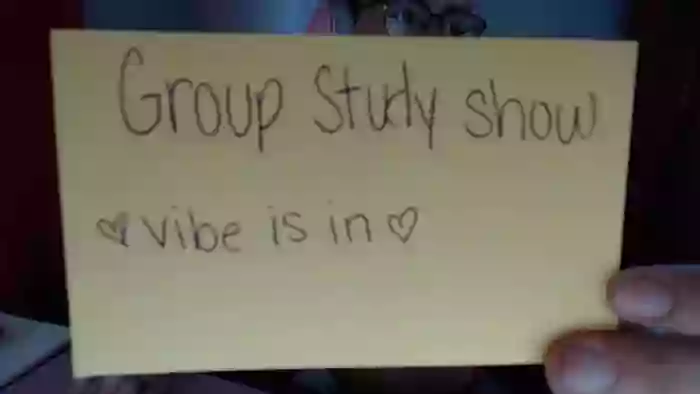 Group Study show
♡ vibe is in ♡